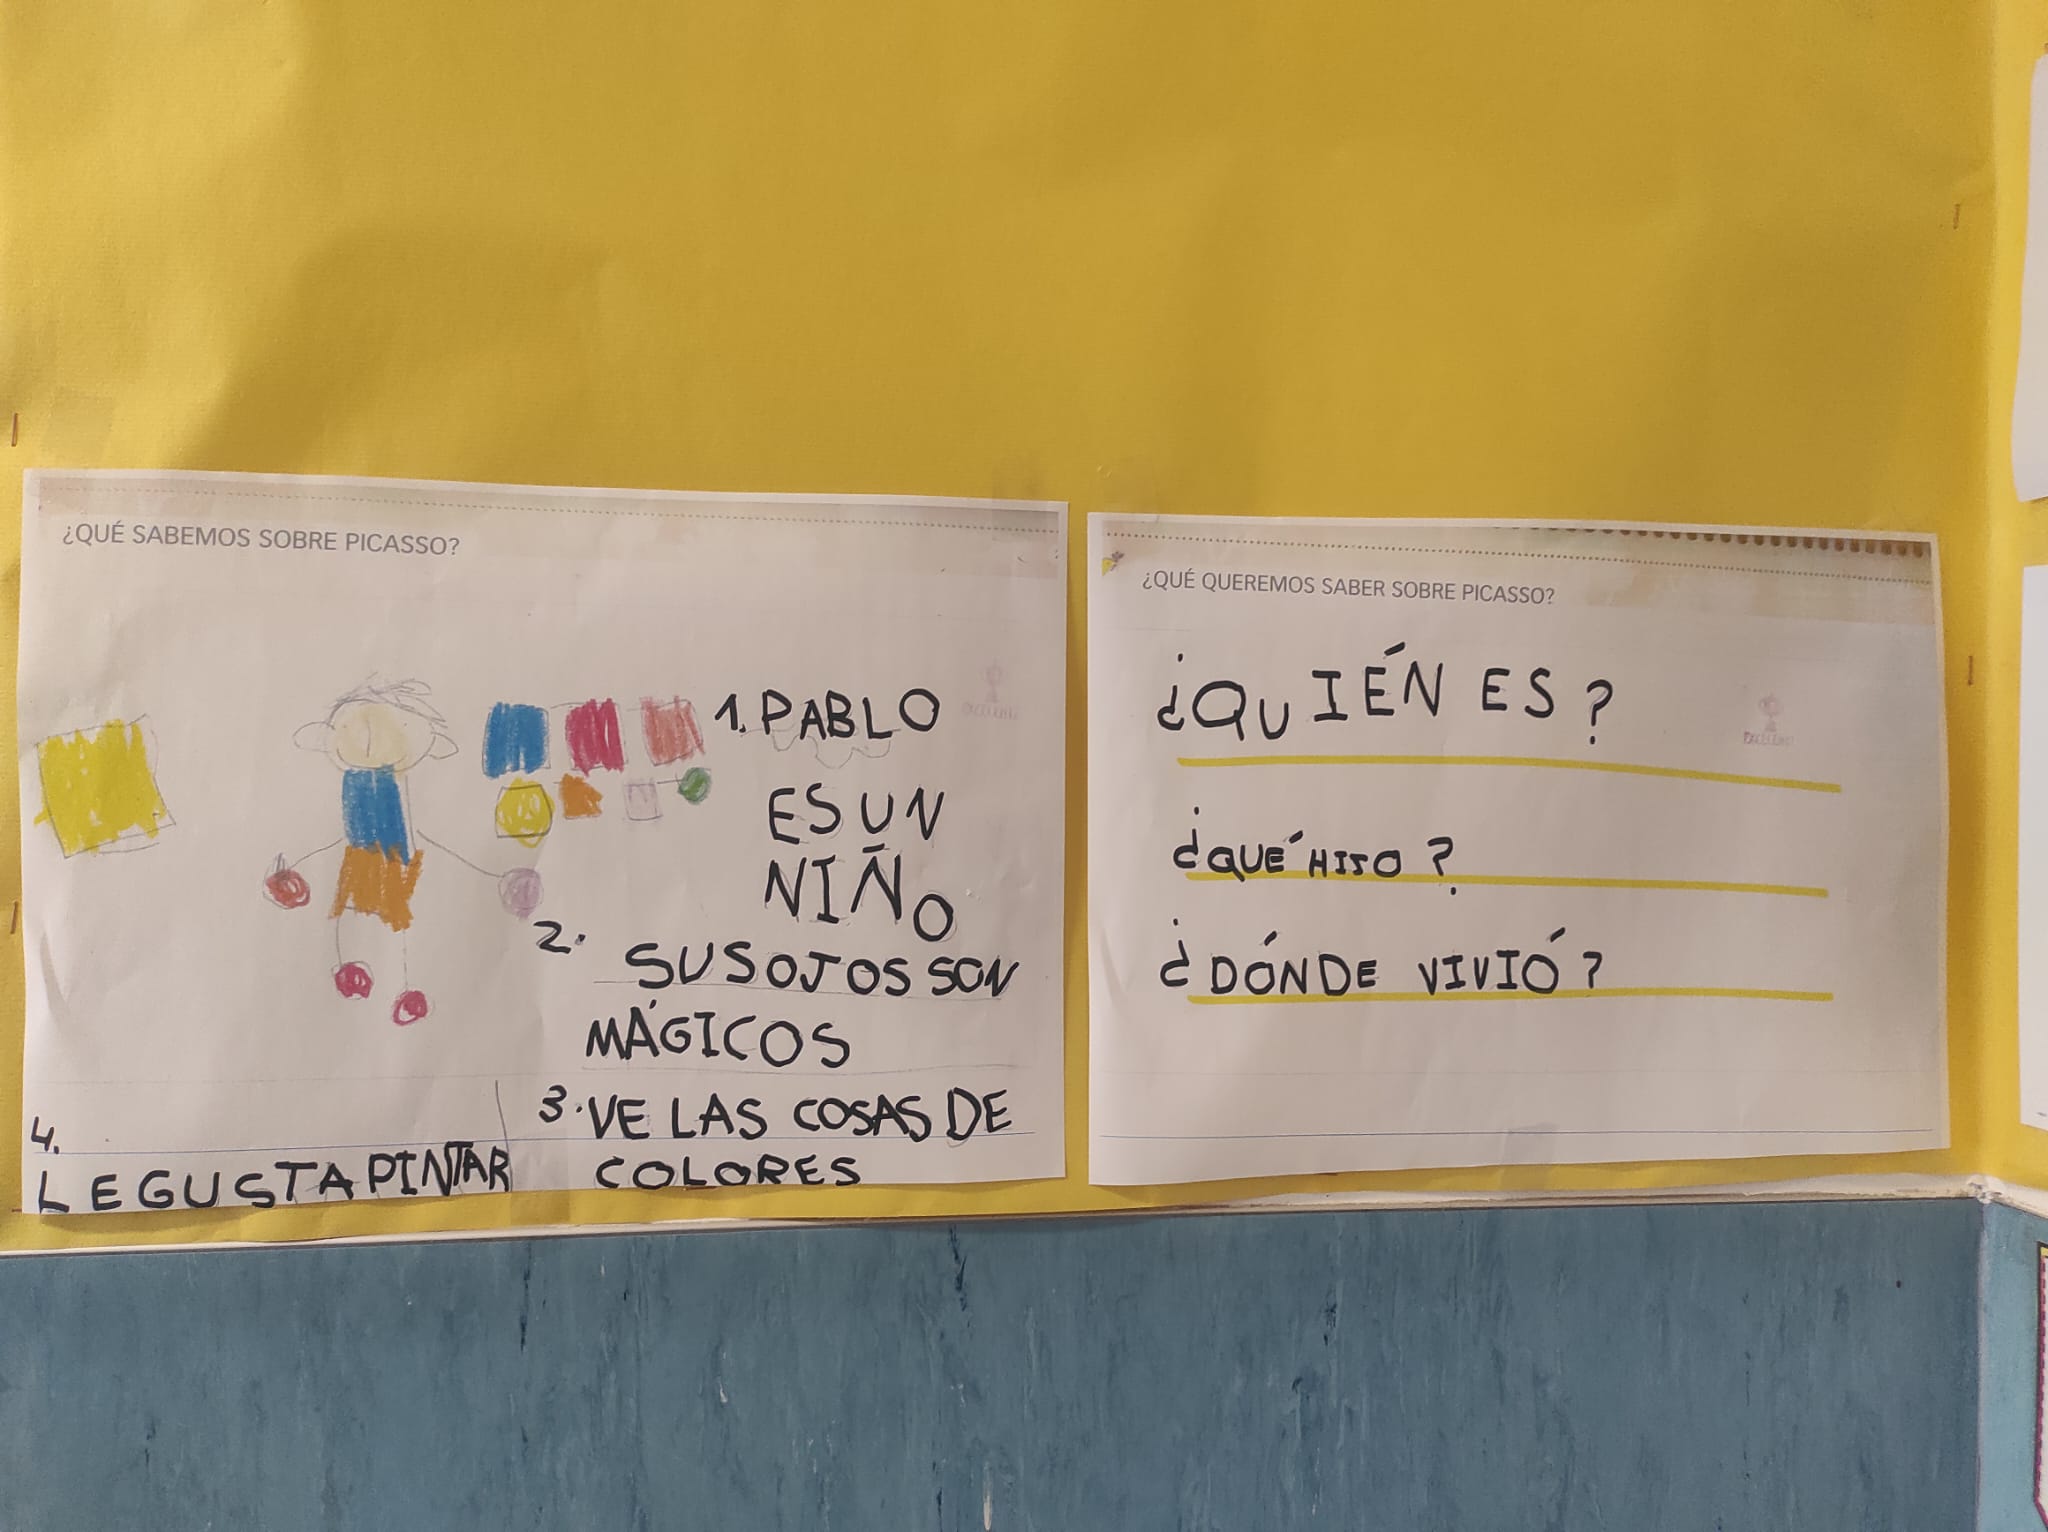 ¿QUÉ SABEMOS SOBRE PICASSO?
1. PABLO
ES UN
NIÑO
2. SUS OJOS SON
MÁGICOS
3. VE LAS COSAS DE
COLORES
4.
LE GUSTA PINTAR
¿QUÉ QUEREMOS SABER SOBRE PICASSO?
¿QUIÉN ES?
¿QUÉ HISO?
¿DÓNDE VIVIÓ?